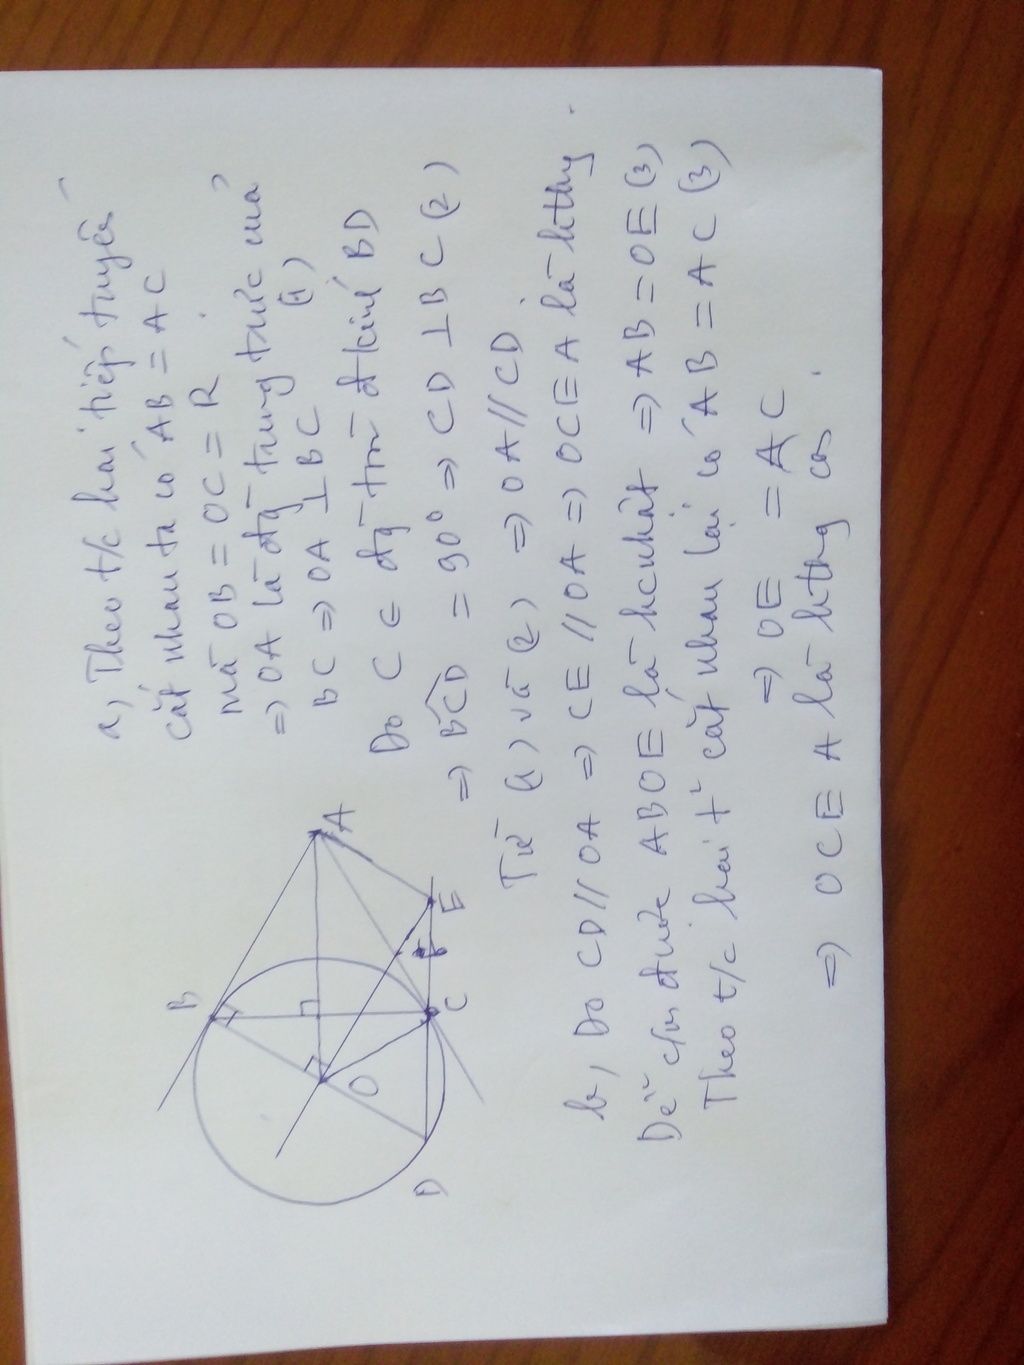 a, Theo t/c hai tiếp tuyến
cắt nhau ta có AB = AC
mà OB = OC = R
⇒ OA là đg trung trực của
BC ⇒ OA ⊥ BC (1)
Do C ∈ đg tròn đkính BD
⇒ BCD = 90° ⇒ CD ⊥ BC (2)
Từ (1) và (2) ⇒ OA // CD
b, Do CD // OA ⇒ CE // OA ⇒ OCEA là hthg.
Dễ c/m được ABOE là hcnhật ⇒ AB = OE (3)
Theo t/c hai t² cắt nhau lại có AB = AC (3)
⇒ OE = AC
⇒ OCEA là hthg cân.
B
A
O
C
D
E